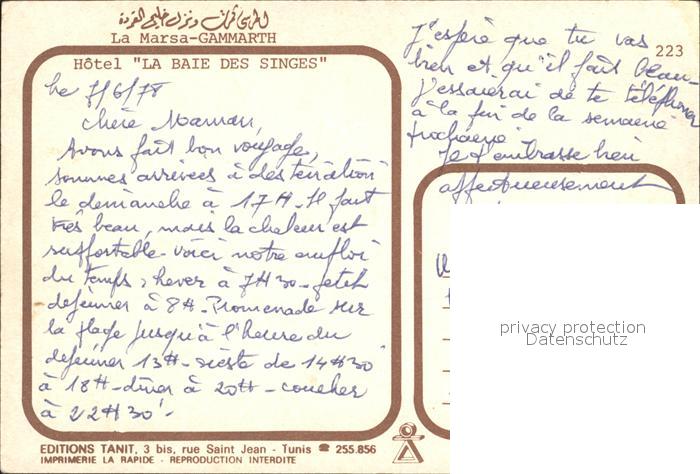 المرسى قمرت ونزل خليج القردة
La Marsa-GAMMARTH
Hôtel "LA BAIE DES SINGES"
223
Le 7/6/78
Chère Maman,
Avons fait bon voyage,
sommes arrivées à destination
le dimanche à 17H. Il fait
très beau, mais la chaleur est
supportable. Voici notre emploi
du temps: Lever à 7H30 - petit
déjeuner à 8H. Promenade sur
la plage jusqu'à l'heure du
déjeuner 13H - sieste de 14H30
à 18H - dîner à 20H - coucher
à 22H30'.
J'espère que tu vas
bien et qu'il fait beau.
J'essaierai de te téléphoner
à la fin de la semaine
prochaine.
Je t'embrasse bien
affectueusement
privacy protection
Datenschutz
EDITIONS TANIT, 3 bis, rue Saint Jean - Tunis ☎ 255.856
IMPRIMERIE LA RAPIDE - REPRODUCTION INTERDITE